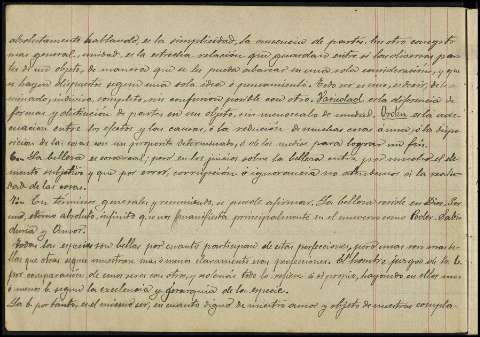 absolutamente hablando, es la simplicidad, la ausencia de partes. En otro concepto
mas general, unidad es la estrecha relacion que guardan entre si las diversas par-
tes de un objeto, de manera que se les pueda abarcar en una sola consideracion, y que
se hayan dispuestas segun una sola idea ó pensamiento. todo ser es uno, es decir, deter-
minado, indiviso, completo, sin confusion posible con otro. Variedad es la diferencia de
formas y distincion de partes en un objeto, sin menoscabo de unidad. Orden es la ade-
cuacion entre los efectos y las causas, ó la reduccion de muchas cosas á una, ó la dispo-
sicion de las cosas con un proposito determinado, ó de los medios para lograr un fin.
La belleza es universal; pero en los juicios sobre la belleza entra por mucho el ele-
mento subjetivo y que por error, corrupcion ó ignorancia no atendemos á la reali-
dad de las cosas.
En terminos generales, y resumiendo, se puede afirmar, La belleza reside en Dios, Ser
uno, eterno absoluto, infinito que nos manifiesta principalmente en el universo como Poder, Sabi-
duria y Amor.
Todas las especies son bellas por cuanto participan de estas perfecciones, pero unas son mas be-
llas que otras segun muestran mas ó menos claramente esas perfecciones. El hombre juzga de la be
por comparacion de unos seres con otros, y ademas todo lo refiere á si propio, hayando en ellos mas
ó menos b. segun la excelencia y gerarquia de la especie.
La b. por tanto, es el mismo ser, en cuanto digno de nuestro amor y objeto de nuestras compla-